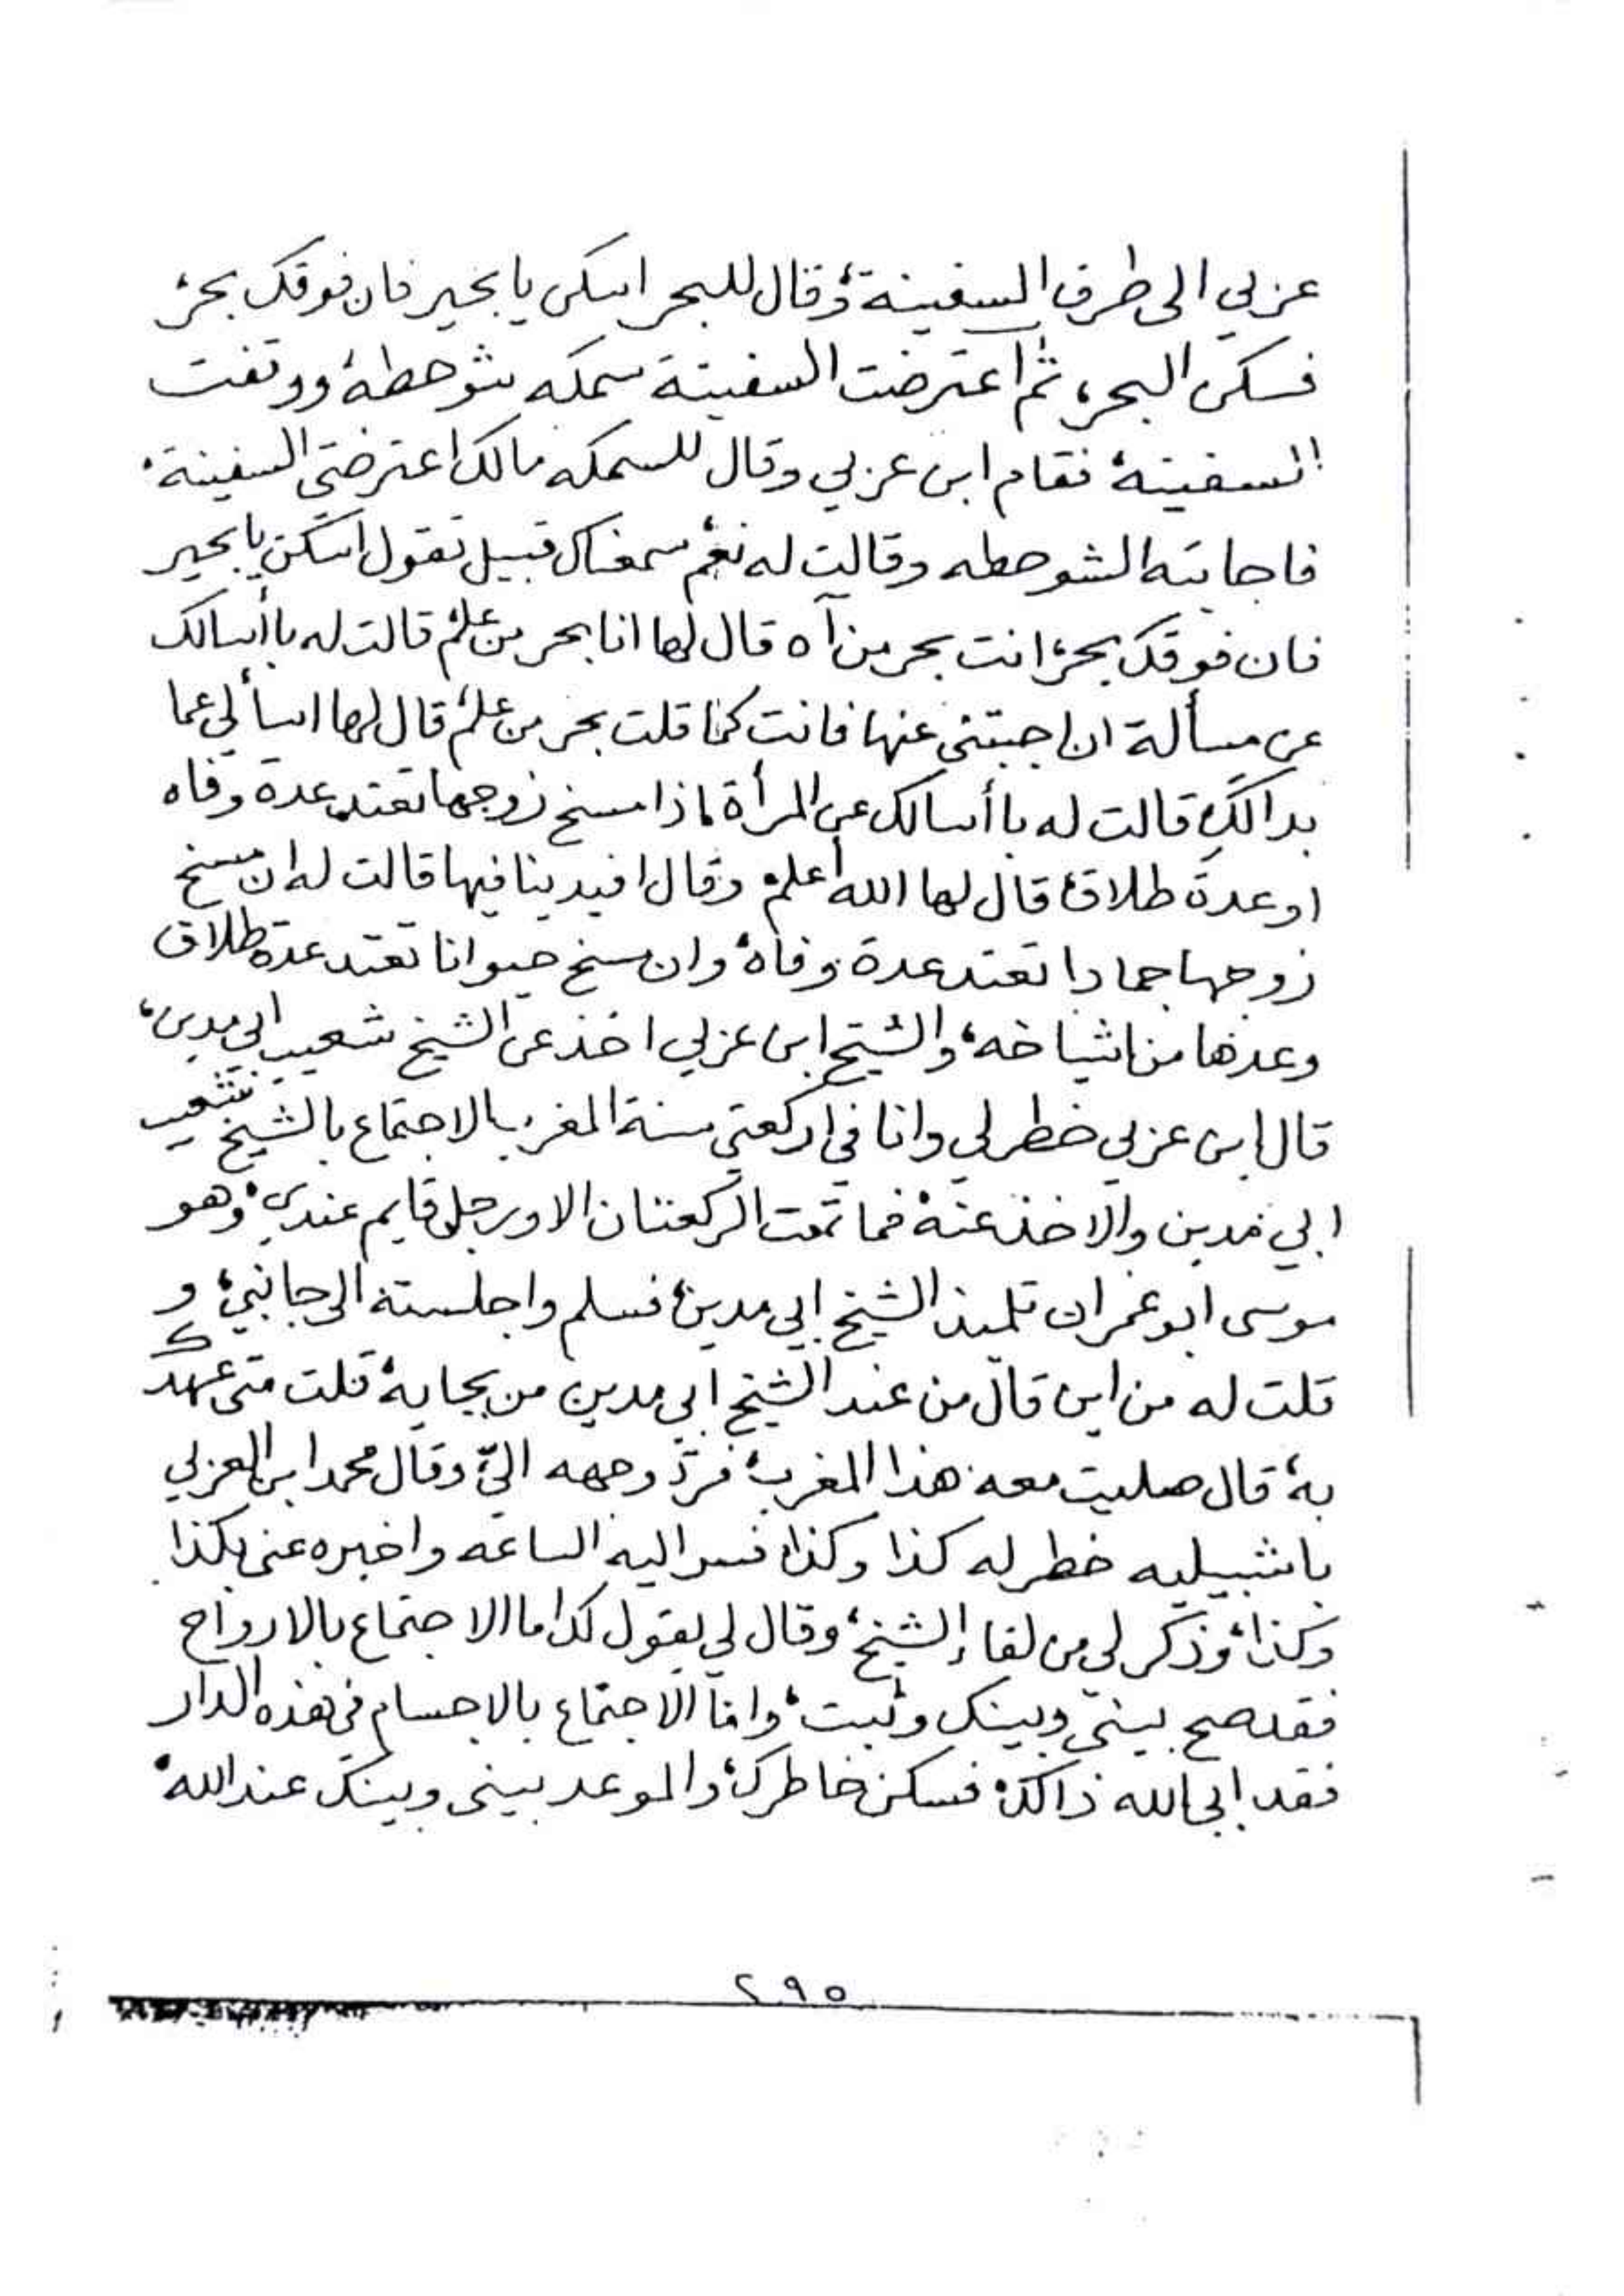 عربي الى طرف السفينة، وقال للبحر اسكن يا بحير فان فوقك بحر،
فسكن البحر، ثم اعترضت السفينة سمكه شوحطه، ووقفت
السفينة، فقام ابن عربي وقال للسمكه مالك اعترضتي السفينة،
فاجابته الشوحطه وقالت له نعم سمعناك قبيل تقول اسكن يا بحير
فان فوقك بحر، انت بحر من آه قال لها انا بحر من علم، قالت له باأسالك
عن مسألة ان اجبتني عنها فانت كما قلت بحر من علم، قال لها اسألي عما
بدالك، قالت له باأسالك عن المرأة، اذا مسخ زوجها تعتد عدة وفاه
او عدة طلاق، قال لها الله أعلم، وقال افيدينا فيها قالت له ان مسخ
زوجها جمادا تعتد عدة وفاة، وان مسخ حيوانا تعتد عدة طلاق
وعدها من اشياخه، والشيخ ابن عربي اخذ عن الشيخ شعيب ابي مدين،
قال ابن عربي خطر لي وانا في اركعتي سنة المغرب الاجتماع بالشيخ شعيب
ابي مدين والاخذ عنه، فما تمت الركعتان الا ورجل قايم عندي، وهو
موسى ابو عمران تلميذ الشيخ ابي مدين، فسلم واجلسته الى جانبي، و
قلت له من اين قال من عند الشيخ ابي مدين من بجاية، قلت متى عهدك
به، قال صليت معه هذا المغرب، فردّ وجهه اليّ وقال محمد ابن العربي
باشبيليه خطر له كذا وكذا، فسر اليه الساعه واخبره عني بكذا
وكذا، وذكر لي من لقاء الشيخ، وقال لي يقول لك اما الاجتماع بالارواح
فقد صح بيني وبينك وثبت، وامّا الاجتماع بالاجسام في هذه الدار
فقد ابى الله ذالك، فسكن خاطرك، والموعد بيني وبينك عند الله،
٢٩٥